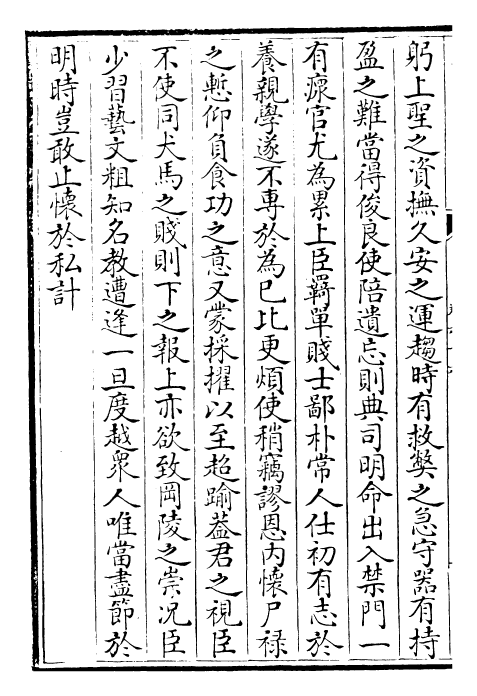 躬上聖之資撫久安之運趨時有救獘之急守器有持
盈之難當得俊良使陪遺忘則典司明命出入禁門一
有瘝官尤為累上臣羇單賤士鄙朴常人仕初有志於
養親學遂不専於為已比更煩使稍竊謬恩内懷尸禄
之慙仰負食功之意又蒙採擢以至超踰葢君之視臣
不使同犬馬之賤則下之報上亦欲致岡陵之崇况臣
少習藝文粗知名教遭逢一旦度越衆人唯當盡節於
明時豈敢止懷於私計